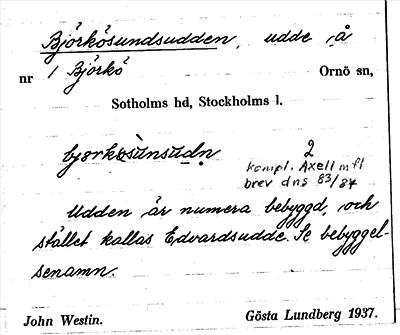 Björkösundsudden, udde å
nr 1 Björkö Ornö sn,
Sotholms hd, Stockholms l.
bjørkosùnsùdn 2
kompl. Axell m fl
brev dns 83/84
Udden är numera bebyggd, och
stället kallas Edvardsudde. Se bebyggel-
senamn.
John Westin. Gösta Lundberg 1937.